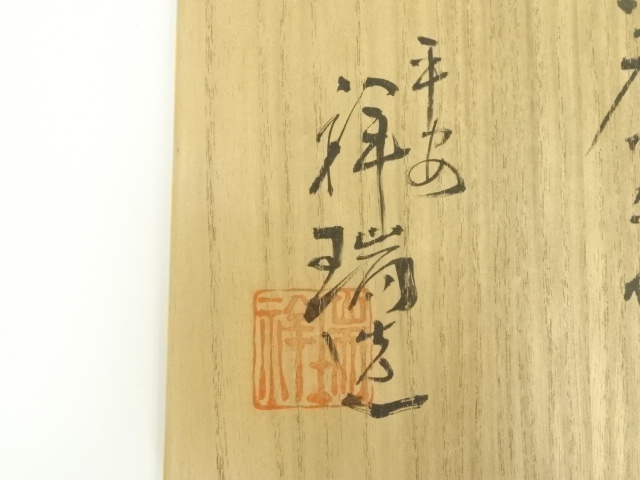 平安
祥瑞造
祥瑞